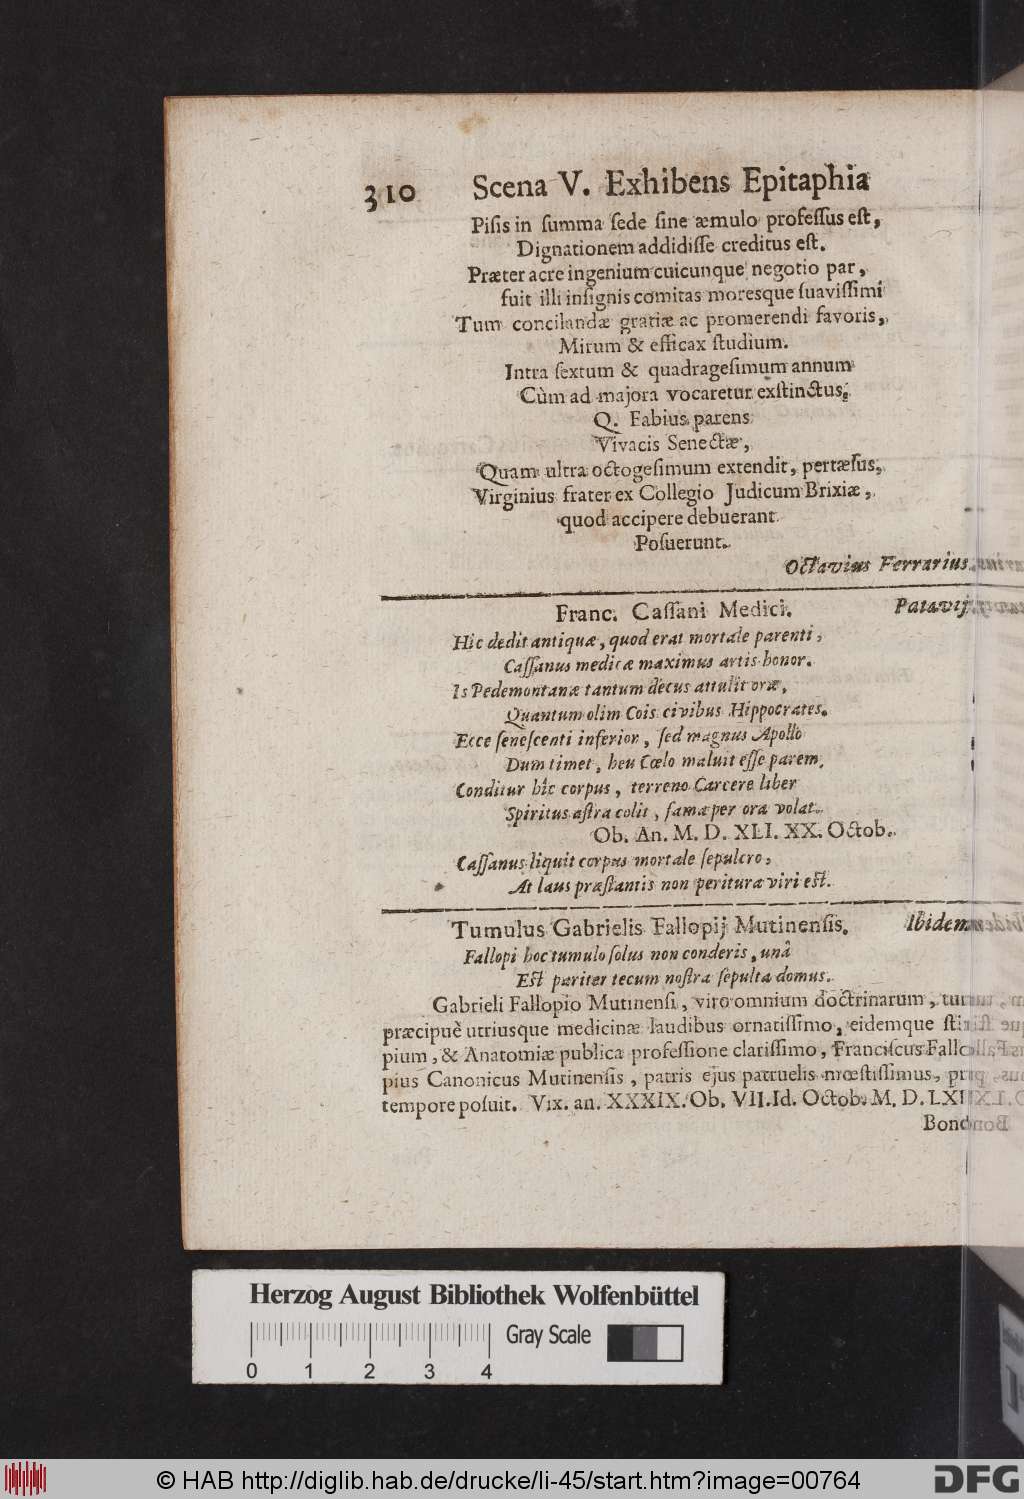 310 Scena V. Exhibens Epitaphia
Pisis in summa sede sine æmulo professus est,
Dignationem addidisse creditus est.
Præter acre ingenium cuicunque negotio par,
fuit illi insignis comitas moresque suavissimi
Tum concilandæ gratiæ ac promerendi favoris,
Mirum & efficax studium.
Intra sextum & quadragesimum annum
Cùm ad majora vocaretur exstinctus;
Q. Fabius parens
Vivacis Senectæ,
Quam ultra octogesimum extendit, pertæsus,
Virginius frater ex Collegio Judicum Brixiæ,
quod accipere debuerant
Posuerunt.
Octavius Ferrarius.
Franc. Cassani Medici. Patavij.
Hic dedit antiquæ, quod erat mortale parenti,
Cassanus medicæ maximus artis honor.
Is Pedemontanæ tantum decus attulit oræ,
Quantum olim Cois civibus Hippocrates.
Ecce senescenti inferior, sed magnus Apollo
Dum timet, heu Cœlo maluit esse parem.
Conditur hîc corpus, terreno Carcere liber
Spiritus astra colit, fama per ora volat.
Ob. An. M. D. XLI. XX. Octob.
Cassanus liquit corpus mortale sepulcro,
At laus præstantis non peritura viri est.
Tumulus Gabrielis Fallopij Mutinensis. Ibidem
Fallopi hoc tumulo solus non conderis, unâ
Est pariter tecum nostra sepulta domus.
Gabrieli Fallopio Mutinensi, viro omnium doctrinarum, tum
præcipuè utriusque medicinæ laudibus ornatissimo, eidemque
pium, & Anatomiæ publica professione clarissimo, Franciscus Fallo
pius Canonicus Mutinensis, patris ejus patruelis mœstissimus,
tempore posuit. Vix. an. XXXIX. Ob. VII. Id. Octob. M. D.
Bono
Herzog August Bibliothek Wolfenbüttel
Gray Scale
0 1 2 3 4
© HAB http://diglib.hab.de/drucke/li-45/start.htm?image=00764
DFG